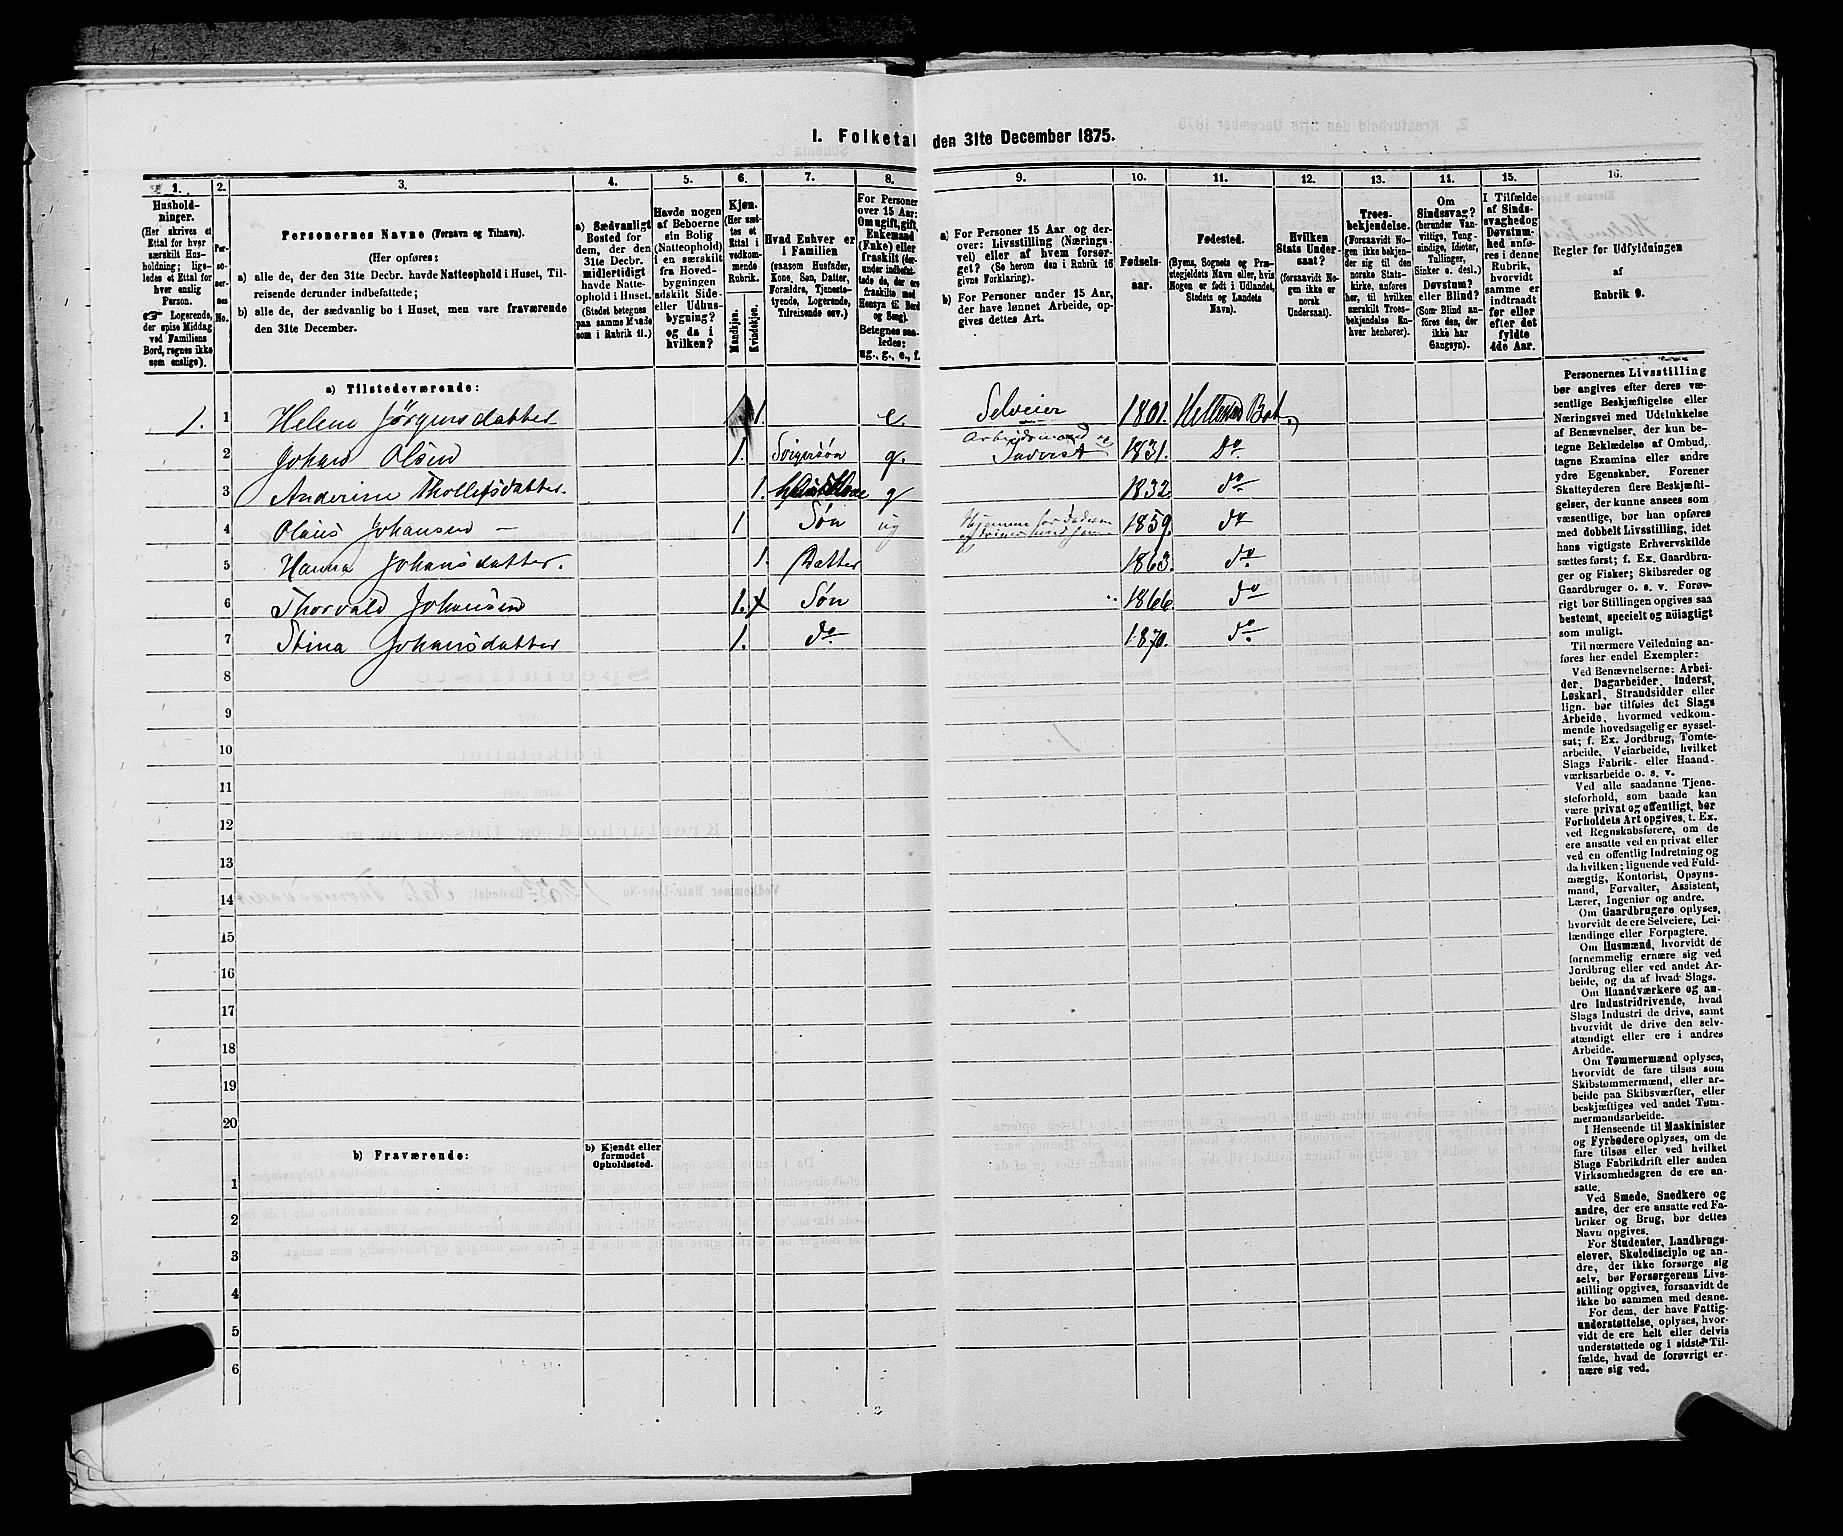 I. Folketal den 31te December 1875.
1. 2. 3. 4. 5. 6. 7. 8. 9. 10. 11. 12. 13. 14. 15. 16.
Hushold-
ninger.
(Her skrives et
Ettal for hver
særskilt Hus-
holdning; lige-
ledes et Ettal for
hver enslig
Person.
☞ Logerende,
der spise Middag
ved Familiens
Bord, regnes ikke
som enslige).
Per-
so-
ner-
nes
No.
Personernes Navne (Fornavn og Tilnavn).
(Her opføres:
a) alle de, der den 31te Decbr. havde Natteophold i Huset, Til-
reisende derunder indbefattede;
b) alle de, der sædvanlig bo i Huset, men vare fraværende
den 31te December.
a) Sædvanligt
Bosted for
dem, der den
31te Decbr.
midlertidigt
havde Natte-
ophold i Huset.
(Stedet betegnes
paa samme Maade
som i Rubrik 11.)
Havde nogen
af Beboerne
sin Bolig
(Natteophold)
i en særskilt
fra Hoved-
bygningen
adskilt Side-
eller Udhus-
bygning?
og da i
hvilken?
Kjøn.
(Her sæt-
tes et
Ettal i
vedkom-
mende
Rubrik.
Mandkjøn.
Kvindekjøn.
Hvad Enhver er
i Familien
(saasom Husfader,
Kone, Søn, Datter,
Forældre, Tjeneste-
tyende, Logerende,
Tilreisende osv.)
For Personer
over 15 Aar:
Om ugift, gift,
Enkemand
(Enke) eller
fraskilt
Betegnes saa-
ledes:
ug., g., e., f.
a) For Personer 15 Aar og der-
over: Livsstilling (Nærings-
vei) eller af hvem forsør-
get? (Se herom den i Rubrik 16
givne Forklaring).
b) For Personer under 15 Aar,
der have lønnet Arbeide, op-
gives dettes Art.
Fødsels-
aar.
Fødested.
(Byens, Sognets og Præ-
stegjeldets Navn eller, hvis
Nogen er født i Udlandet,
Stedets og Landets
Navn).
Hvilken
Stats Under-
saat?
(forsaavidt No-
gen ikke er
norsk
Undersaat).
Troes-
bekjendelse.
(Forsaavidt No-
gen ikke bekjen-
der sig til den
norske Stats-
kirke, anføres
her, til hvilken
særskilt Troes-
bekjendelse En-
hver henhører).
Om
Sindssvag?
(herunder Van-
vittige, Tung-
sindige, Idioter,
Tullinger,
Sinker o. desl.)
Døvstum?
eller Blind?
(Som Blind an-
føres den, der
ikke har
Gangsyn).
I Tilfælde
af Sinds-
svaghed og
Døvstum-
hed anfø-
res i denne
Rubrik,
hvorvidt
samme er
indtraadt
før eller
efter det
fyldte
4de Aar.
Regler for Udfyldningen
af
Rubrik 9.
a) Tilstedeværende:
1. 1 Helene Jørgensdatter 1 e. Selveier 1801.
2 Johan Olsen 1 g. Arbeidsmand 1831. Do
3 Anderine Thollefsdatter. 1. g 1832 do
4 Olaus Johansen — 1 Søn ug 1859. do
5 Hanna Johansdatter. 1. Datter 1863. do
6 Thorvald Johansen 1. x Søn 1866. do
7 Stina Johansdatter 1. do 1870. do
8
9
10
11
12
13
14
15
16
17
18
19
20
b) Fraværende: b) Kjendt eller
formodet
Opholdssted.
1
2
3
4
5
6
Personernes Livsstilling
bør angives efter deres væ-
sentlige Beskjæftigelse eller
Næringsvei med Udelukkelse
af Benævnelser, der kun be-
tegne Beklædelse af Ombud,
tagne Examina eller andre
ydre Egenskaber. Forener
Skatteyderen flere Beskjæfti-
gelser, der kunne ansees som
væsentlige, bør han opføres
med dobbelt Livsstilling, idet
hans vigtigste Erhvervskilde
sættes først; f. Ex. Gaardbru-
ger og Fisker; Skibsreder og
Gaardbruger o. s. v. Forøv-
rigt bør Stillingen opgives saa
bestemt, specielt og nøiagtigt
som muligt.
Til nærmere Veiledning an-
føres her endel Exempler:
Ved Benævnelserne: Arbei-
der, Dagarbeider, Inderst,
Løskarl, Strandsidder eller
lign. bør tilføies det Slags
Arbeide, hvormed vedkom-
mende hovedsagelig er syssel-
sat; f. Ex. Jordbrug, Tomte-
arbeide, Veiarbeide, hvilket
Slags Fabrik- eller Haand-
værksarbeide o. s. v.
Ved alle saadanne Tjene-
steforhold, som baade kan
være privat og offentligt, bør
Forholdets Art opgives, t. Ex.
ved Regnskabsførere, om de
ere ansatte ved en privat eller
ved en offentlig Indretning og
da hvilken; lignende ved Fuld-
mægtig, Kontorist, Opsyns-
mand, Forvalter, Assistent,
Lærer, Ingeniør og andre.
Om Gaardbrugere oplyses,
hvorvidt de ere Selveiere, Lei-
lændinge eller Forpagtere.
Om Husmænd, hvorvidt de
fornemmelig ernære sig ved
Jordbrug eller ved andet Ar-
beide, og da af hvad Slags.
Om Haandværkere og an-
dre Industridrivende, hvad
Slags Industri de drive, samt
hvorvidt de drive den selv-
stændigt eller ere i andres
Arbeide.
Om Tømmermænd oplyses,
hvorvidt de fare tilsøs som
Skibstømmermænd, eller ar-
beide paa Skibsværfter, eller
beskjæftiges ved andet Tøm-
mermandsarbeide.
I Henseende til Maskinister
og Fyrbødere oplyses, om de
fare tilsøs eller ved hvilket
Slags Fabrikdrift eller anden
Virksomhedsgren de ere an-
satte.
Ved Smede, Snedkere og
andre, der ere ansatte ved Fa-
briker og Brug, bør dettes
Navn opgives.
For Studenter, Landbrugs-
elever, Skoledisciple og an-
dre, der ikke forsørge sig
selv, bør Forsørgerens Livs-
stilling opgives, forsaavidt de
ikke bo sammen med denne.
For dem, der have Fattig-
understøttelse, oplyses, hvor-
vidt de ere helt eller delvis
understøttede og i sidste Til-
fælde, hvad de forøvrigt er-
nære sig ved.